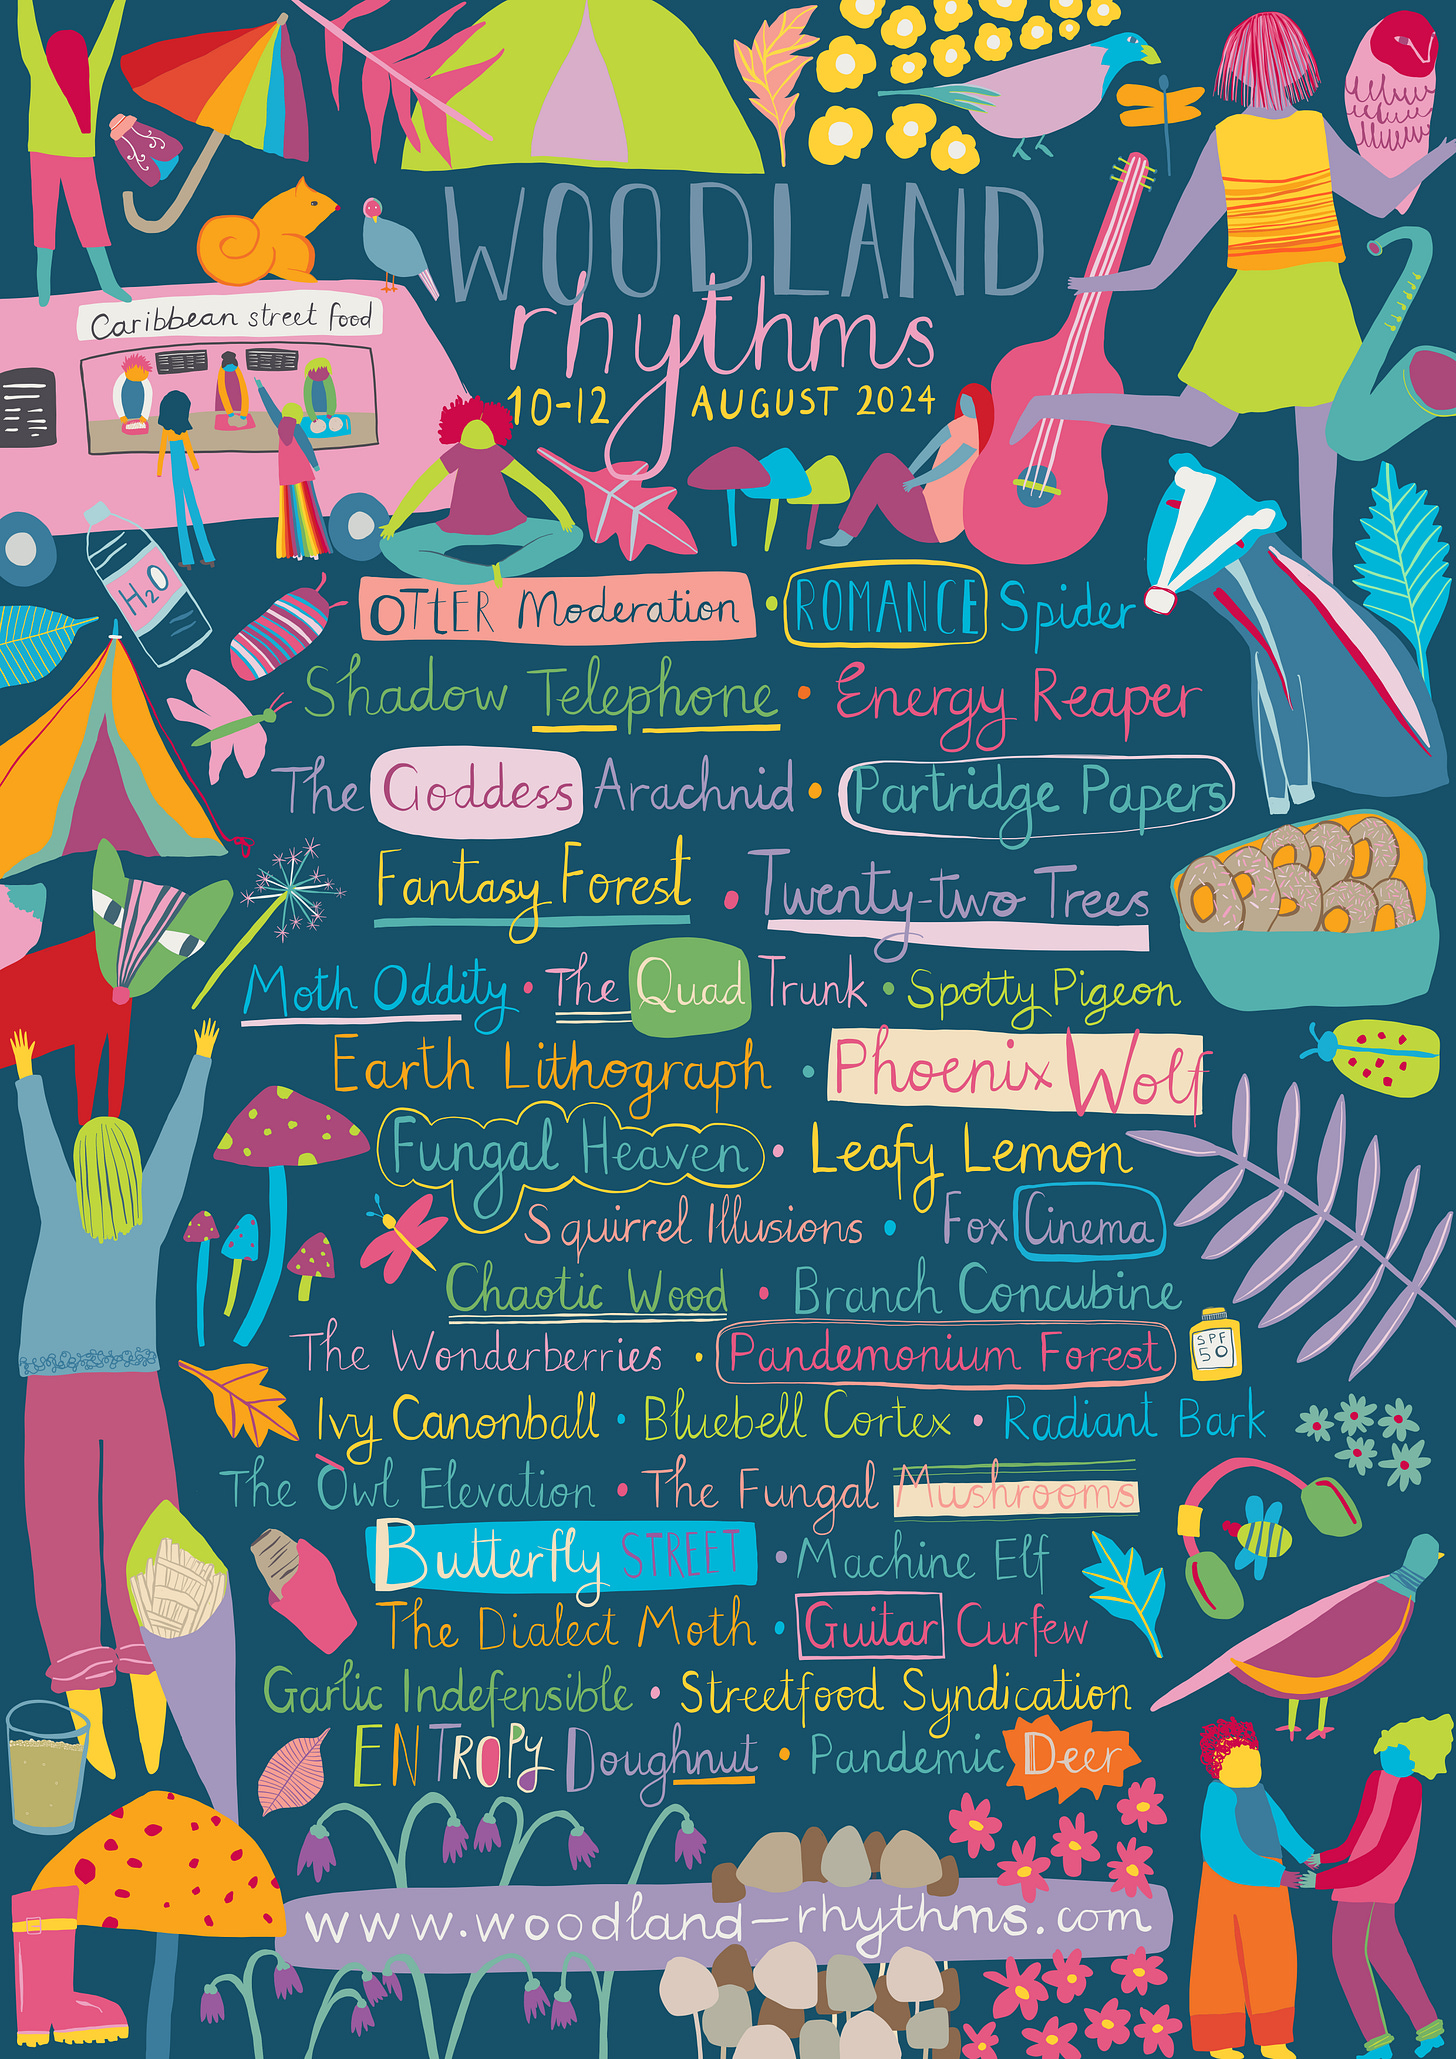 WOODLAND
rhythms
10-12 AUGUST 2024
Caribbean street food
H2O
OTtER Moderation • ROMANCE Spider
Shadow Telephone • Energy Reaper
The Goddess Arachnid • Partridge Papers
Fantasy Forest • Twenty-two Trees
Moth Oddity • The Quad Trunk • Spotty Pigeon
Earth Lithograph • Phoenix Wolf
Fungal Heaven • Leafy Lemon
Squirrel Illusions • Fox Cinema
Chaotic Wood • Branch Concubine
The Wonderberries • Pandemonium Forest
SPF
50
Ivy Canonball • Bluebell Cortex • Radiant Bark
The Owl Elevation • The Fungal Mushrooms
Butterfly STREET • Machine Elf
The Dialect Moth • Guitar Curfew
Garlic Indefensible • Streetfood Syndication
ENTROPy Doughnut • Pandemic Deer
www.woodland-rhythms.com